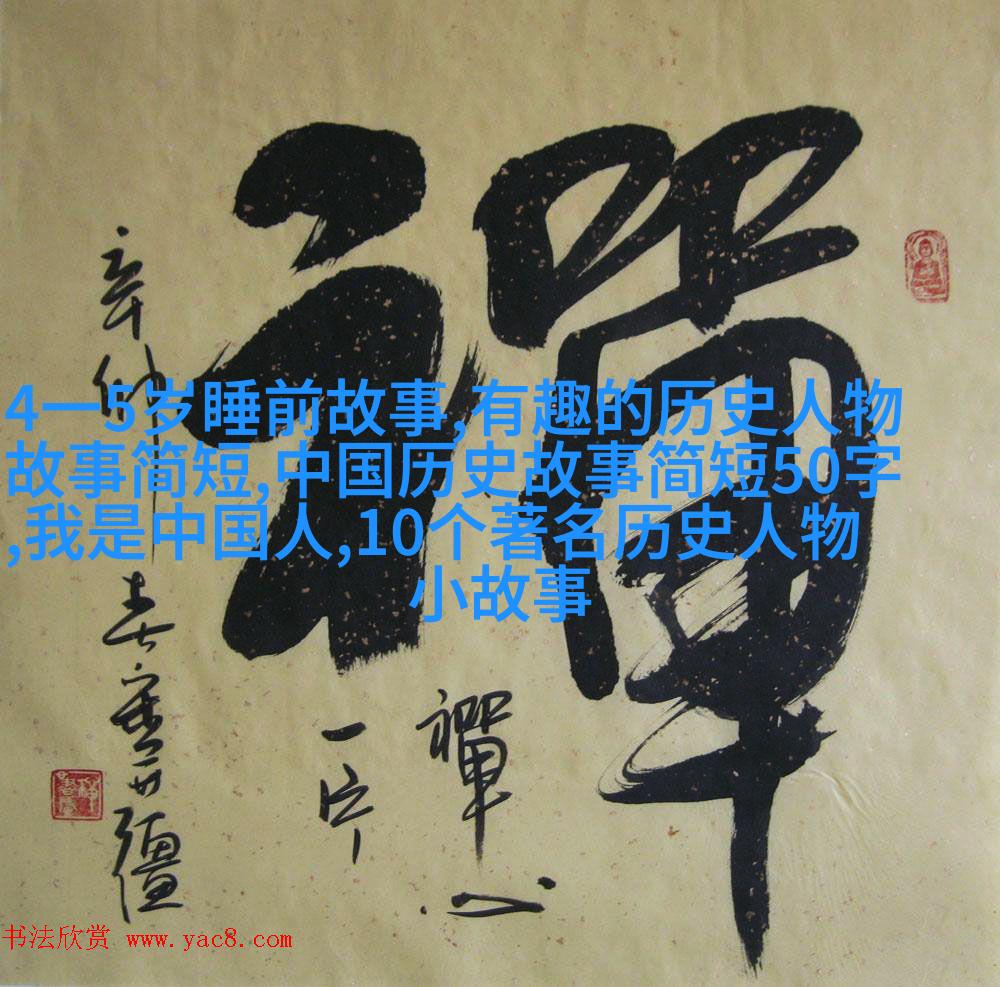 禪
禪心
一片
4一5岁睡前故事,有趣的历史人物
故事简短,中国历史故事简短50字
,我是中国人,10个著名历史人物
小故事
书法欣赏 www.yac8.com